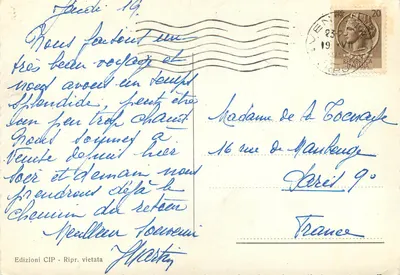 Jeudi 19.
Nous faisons un
très beau voyage et
nous avons un temps
splendide, peut être
un peu trop chaud
Nous sommes à
Venise depuis hier
soir et demain nous
prendrons déjà le
chemin du retour
Meilleur souvenir
Edizioni CIP - Ripr. vietata
VENEZIA
19
Madame de la
16 rue de Maubeuge
Paris 9°
France